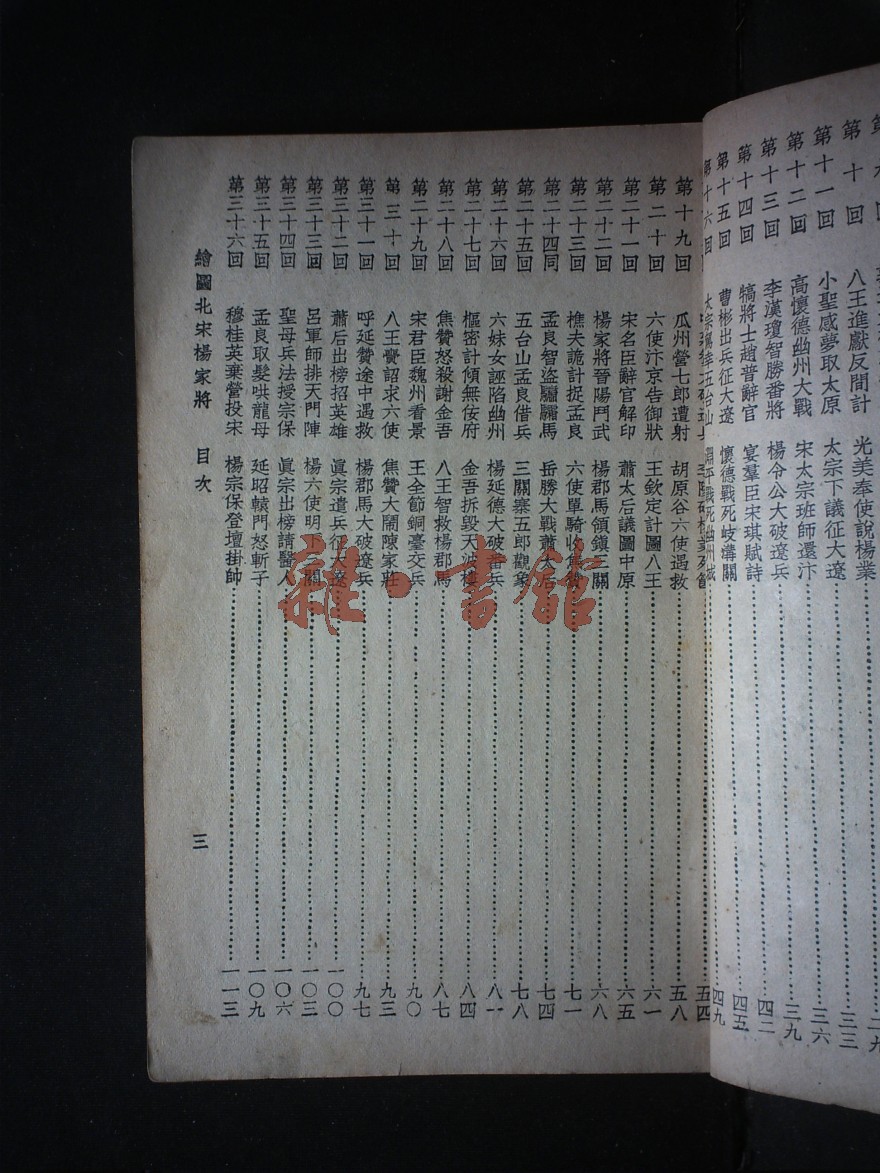 第十回 八王進獻反間計 光美奉使說楊業 三三
第十一回 小聖感夢取太原 太宗下議征大遼 三六
第十二回 高懷德幽州大戰 宋太宗班師還汴 三九
第十三回 李漢瓊智勝番將 楊令公大破遼兵 四二
第十四回 犒將士趙普辭官 宴羣臣宋琪賦詩 四五
第十五回 曹彬出兵征大遼 懷德戰死岐溝關 四九
第十六回 太宗駕幸五台山 淵平戰死幽州城 五四
第十九回 瓜州營七郎遭射 胡原谷六使遇救 五八
第二十回 六使汴京告御狀 王欽定計圖八王 六一
第二十一回 宋名臣辭官解印 蕭太后議圖中原 六五
第二十二回 楊家將晉陽鬥武 楊郡馬領鎭三關 六八
第二十三回 樵夫詭計捉孟良 六使單騎收 七一
第二十四同 孟良智盜驌驦馬 岳勝大戰蕭太后 七四
第二十五回 五台山孟良借兵 三關寨五郎觀象 七八
第二十六回 六妹女誣陷幽州 楊延德大破番兵 八一
第二十七回 樞密計傾無佞府 金吾拆毀天波樓 八四
第二十八回 焦贊怒殺謝金吾 八王智救楊郡馬 八七
第二十九回 宋君臣魏州看景 王全節銅臺交兵 九〇
第三十回 八王賫詔求六使 焦贊大鬧陳家莊 九三
第三十一回 呼延贊途中遇救 楊郡馬大破遼兵 九七
第三十二回 蕭后出榜招英雄 眞宗遣兵征大遼 一〇〇
第三十三回 呂軍師排天門陣 楊六使明下三關 一〇三
第三十四回 聖母兵法授宗保 眞宗出榜請醫人 一〇六
第三十五回 孟良取髮哄龍母 延昭轅門怒斬子 一〇九
第三十六回 穆桂英棄營投宋 楊宗保登壇掛帥 一一三
繪圖北宋楊家將 目次 三
雜·書館